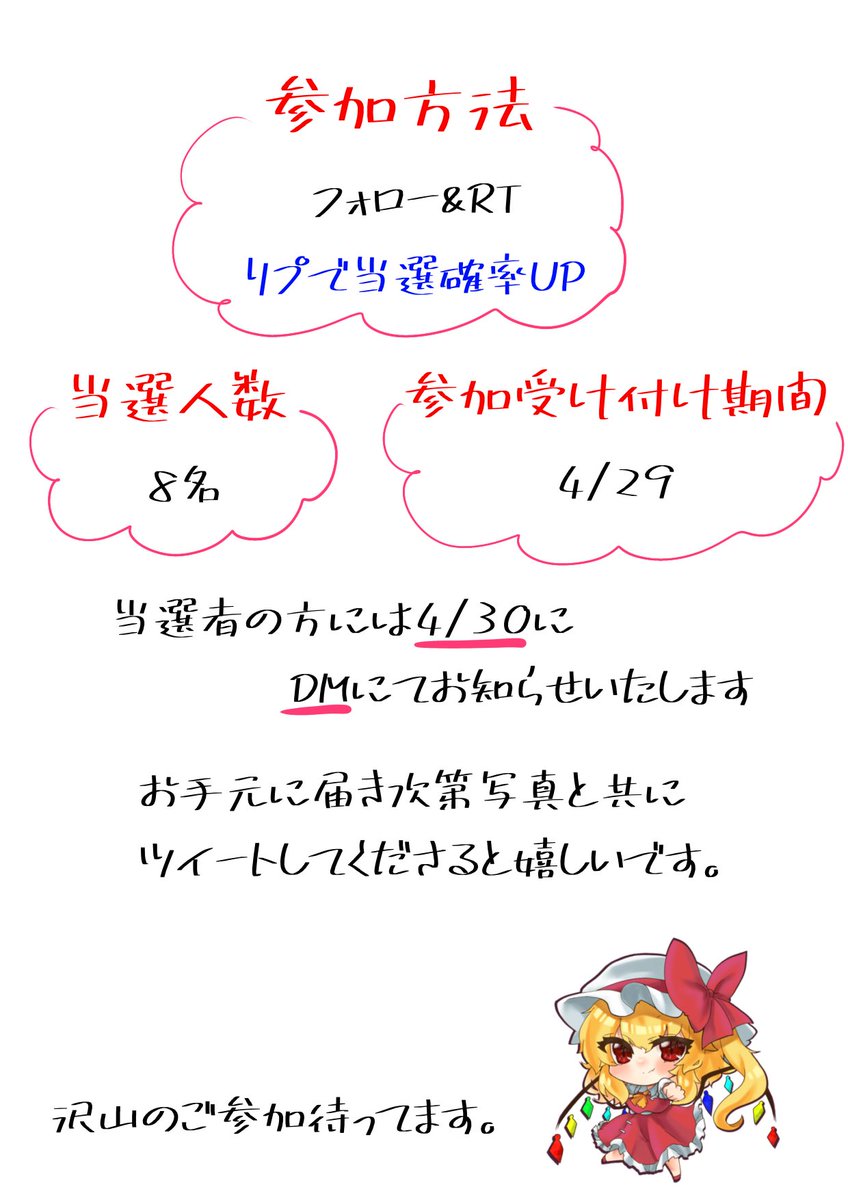 参加方法
フォロー&RT
リプで当選確率UP
当選人数
8名
参加受け付け期間
4/29
当選者の方には4/30に
DMにてお知らせいたします
お手元に届き次第写真と共に
ツイートしてくださると嬉しいです。
沢山のご参加待ってます。